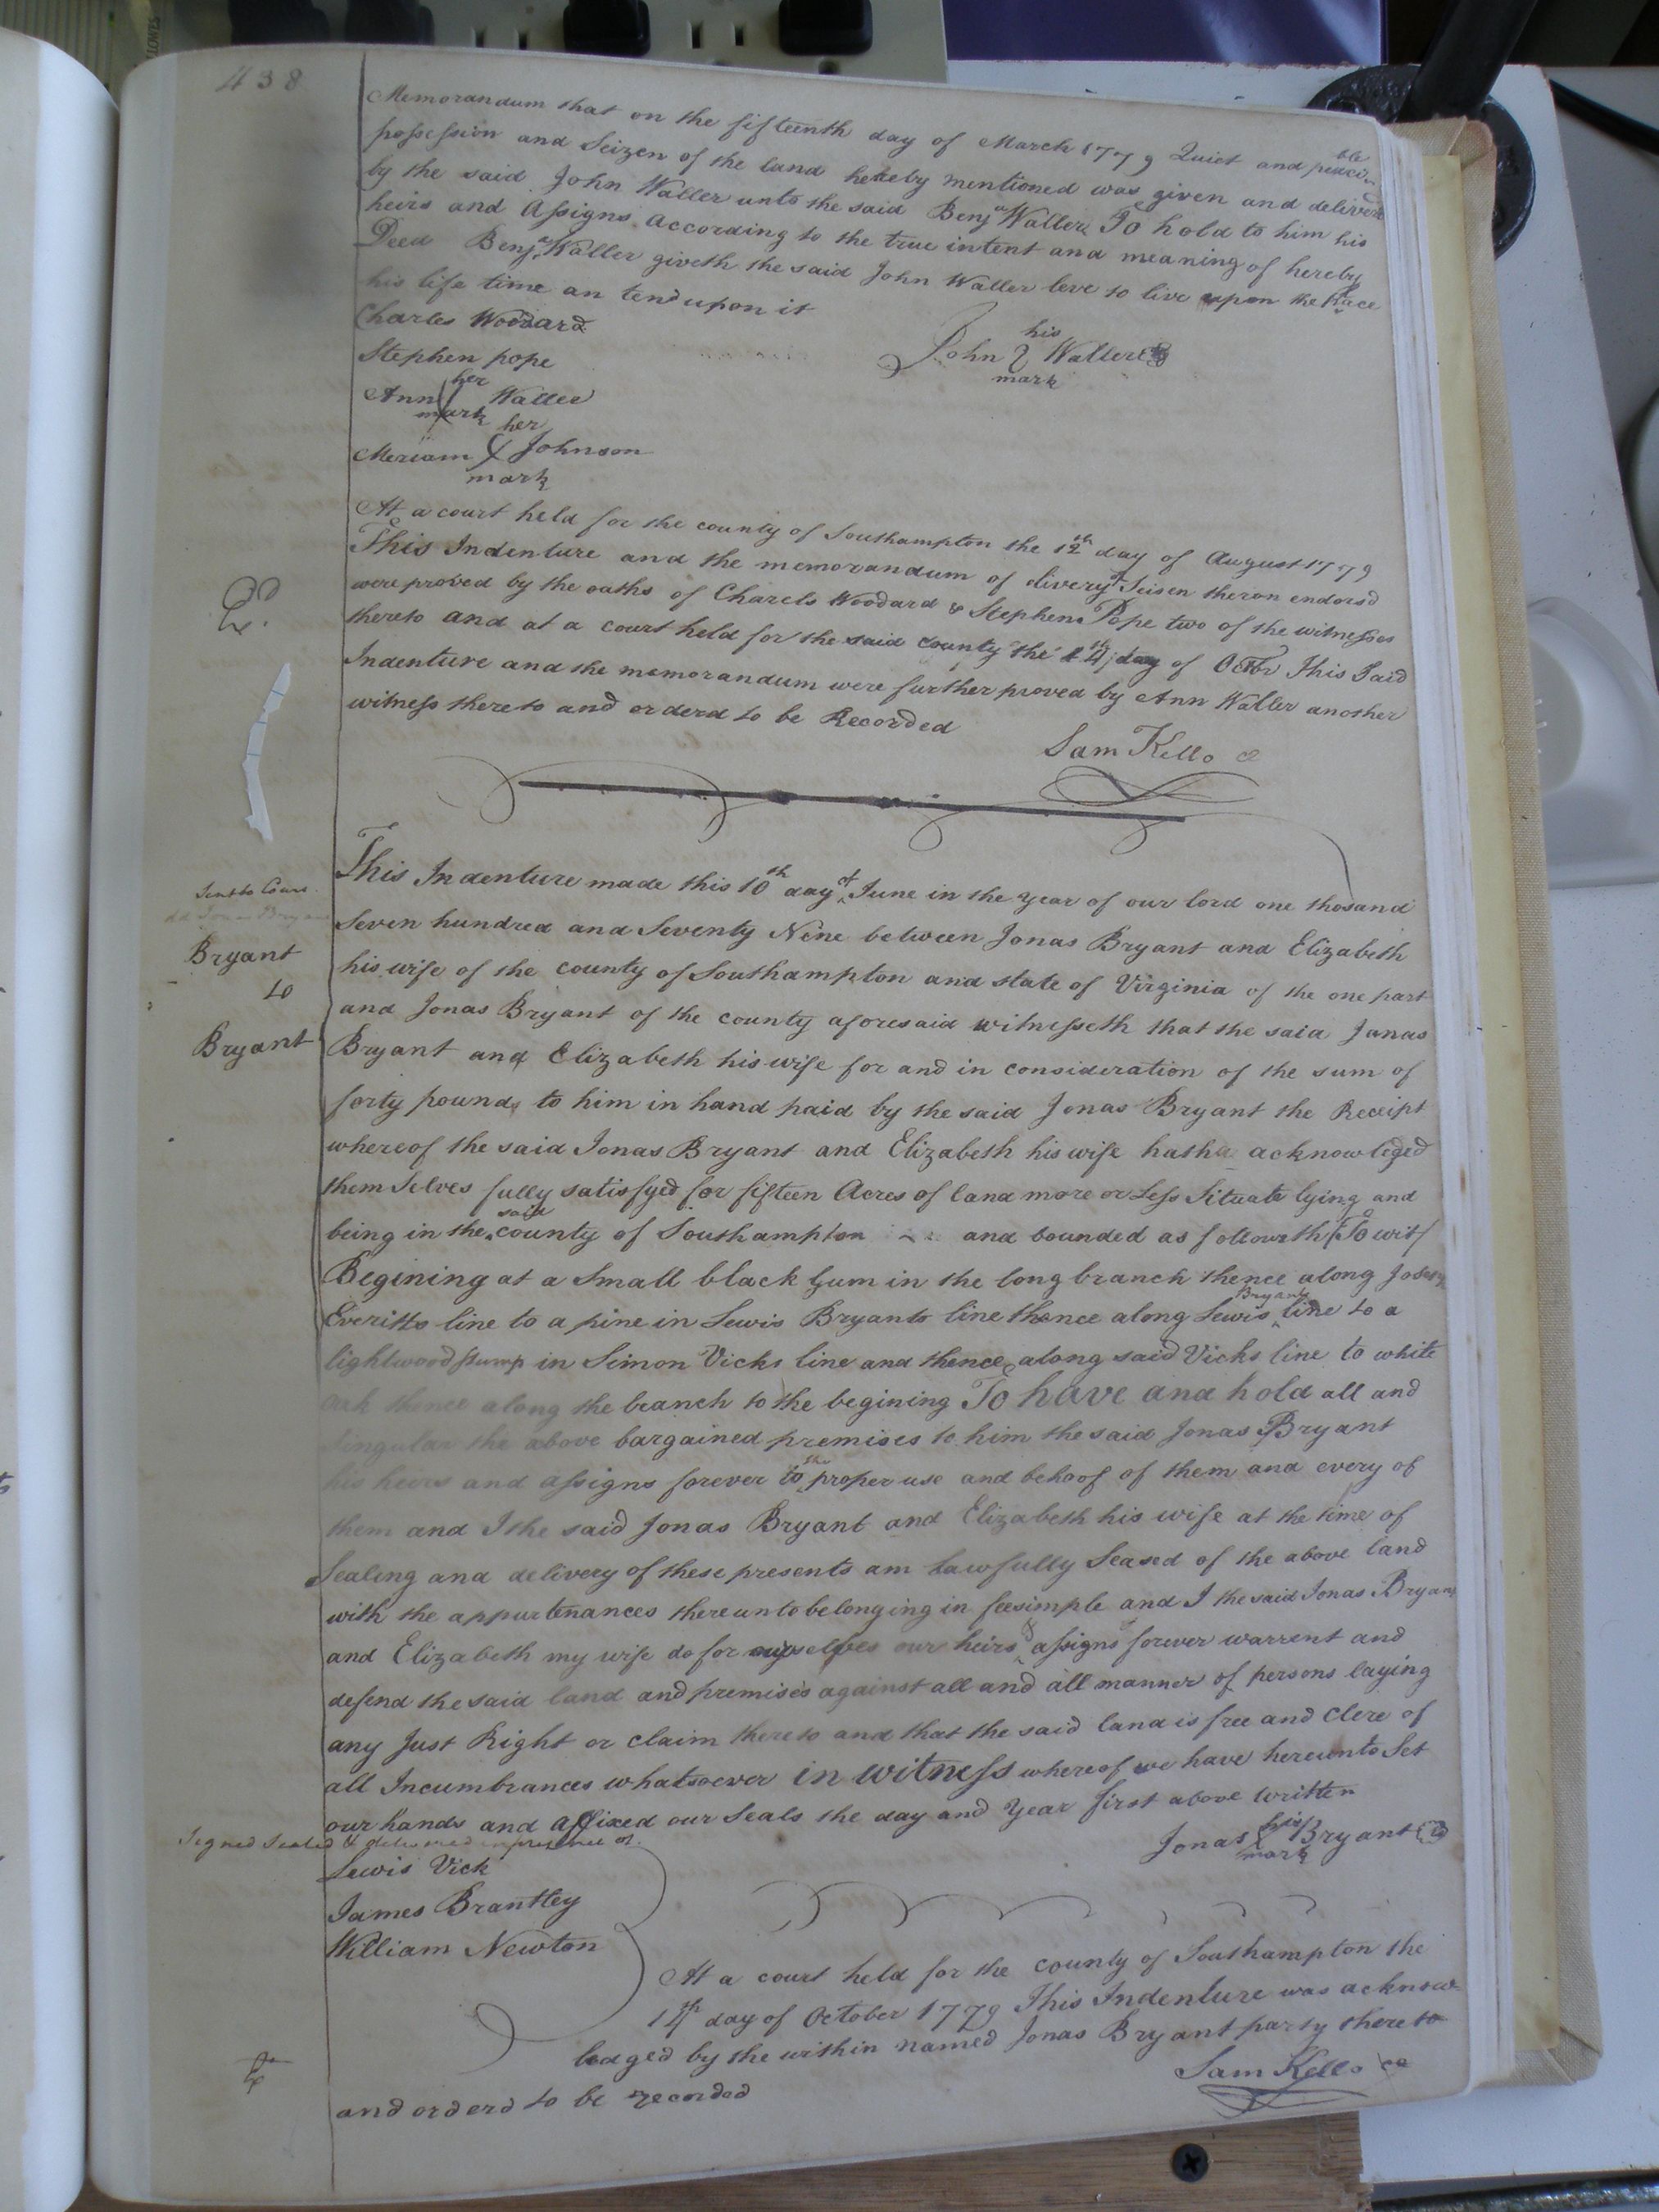 438
Memorandum that on the fifteenth day of March 1779 Quiet and peaceable
possession and Seizen of the land hereby mentioned was given and deliverd
by the said John Waller unto the said Benja Waller To hold to him his
heirs and Assigns according to the true intent and meaning of hereby
Deed Benja Waller giveth the said John Waller leve to live upon the Place
his life time an tend upon it
Charles Woodard
Stephen pope
John his mark Waller
Ann her mark Waller
Meriam her mark Johnson
At a court held for the county of Southampton the 12th day of August 1779
This Indenture and the memorandum of livery of Seisen theron endorsd
were proved by the oaths of Charels Woodard & Stephen Pope two of the witnesses
thereto and at a court held for the said county the 14th day of Octbr This Said
Indenture and the memorandum were further proved by Ann Waller another
witness thereto and orderd to be Recorded
Sam Kello
This Indenture made this 10th day of June in the year of our lord one thosand
Seven hundred and Seventy Nine between Jonas Bryant and Elizabeth
Bryant
to
Bryant
his wife of the county of Southampton and state of Virginia of the one part
and Jonas Bryant of the county aforesaid witnesseth that the said Jonas
Bryant and Elizabeth his wife for and in consideration of the sum of
forty pounds to him in hand paid by the said Jonas Bryant the Receipt
whereof the said Jonas Bryant and Elizabeth his wife hath acknowledged
them Selves fully satisfyed for fifteen Acres of land more or Less Situate lying and
being in the said county of Southampton and bounded as followeth (To wit)
Begining at a Small black Gum in the long branch thence along
Everitts line to a pine in Lewis Bryants line thence along Lewis Bryants line to a
lightwood stump in Simon Vicks line and thence along said Vicks line to white
oak thence along the branch to the begining To have and hold all and
Singular the above bargained premises to him the said Jonas Bryant
his heirs and assigns forever to the proper use and behoof of them and every of
them and I the said Jonas Bryant and Elizabeth his wife at the time of
Sealing and delivery of these presents am Lawfully Seased of the above land
with the appurtenances thereunto belonging in feesimple and I the said Jonas Bryant
and Elizabeth my wife do for ourselves our heirs & assigns forever warrent and
defend the said land and premises against all and all manner of persons laying
any Just Right or claim thereto and that the said land is free and Clere of
all Incumbrances whatsoever in witness whereof we have hereunto Set
our hands and affixed our Seals the day and Year first above written
Signed Sealed & delivered in presence of
Jonas his mark Bryant
Lewis Vick
James Brantley
William Newton
At a court held for the county of Southampton the
14th day of October 1779 This Indenture was acknow
ledged by the within named Jonas Bryant party thereto
and orderd to be recorded
Sam Kello